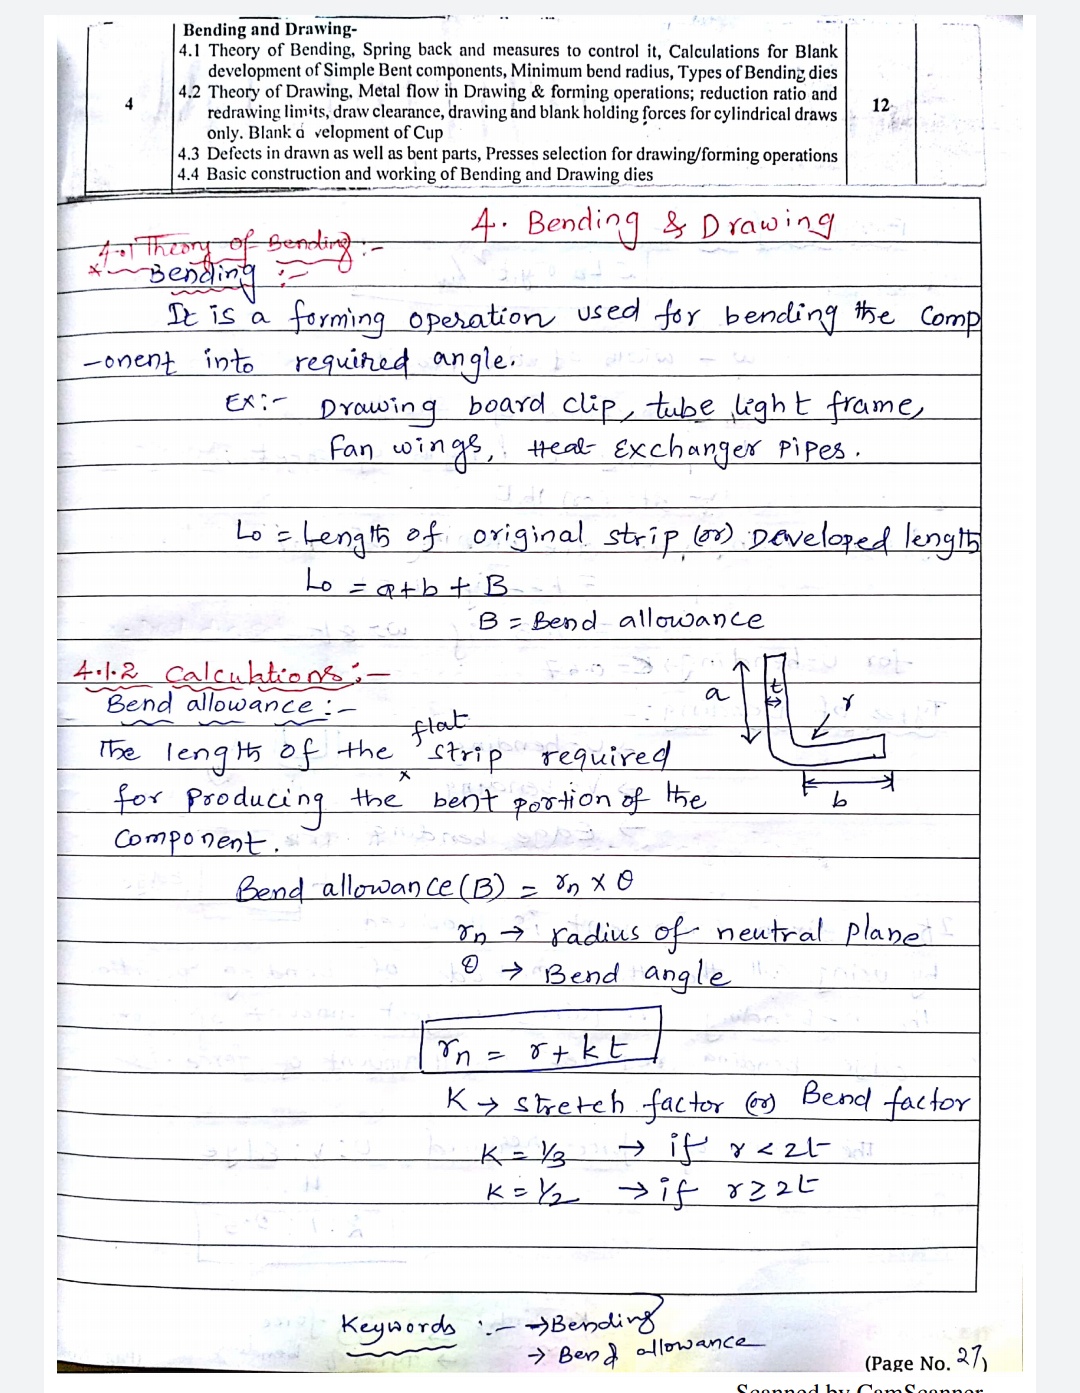 Bending and Drawing-
4.1 Theory of Bending, Spring back and measures to control it, Calculations for Blank
development of Simple Bent components, Minimum bend radius, Types of Bending dies
4
4.2 Theory of Drawing, Metal flow in Drawing & forming operations; reduction ratio and
redrawing limits, draw clearance, drawing and blank holding forces for cylindrical draws
12
only. Blank d velopment of Cup
4.3 Defects in drawn as well as bent parts, Presses selection for drawing/forming operations
4.4 Basic construction and working of Bending and Drawing dies
4. Bending & Drawing
4.1 Theory of Bending :-
* Bending :-
It is a forming operation used for bending the Comp
-onent into required angle.
Ex:- Drawing board clip, tube light frame,
Fan wings, Heat Exchanger Pipes.
Lo = Length of original strip (or) Developed length
Lo = a+b+B
B = Bend allowance
4.1.2 Calculations:-
Bend allowance :-
a
t
r
b
The length of the flat strip required
for producing the bent portion of the
Component.
Bend allowance (B) = rn X θ
rn → radius of neutral plane
θ → Bend angle
rn = r+kt
K → stretch factor (or) Bend factor
K = 1/3 → if r < 2t
K = 1/2 → if r ≥ 2t
Keywords :- → Bending
→ Bend allowance
(Page No. 27)
Scanned by CamScanner